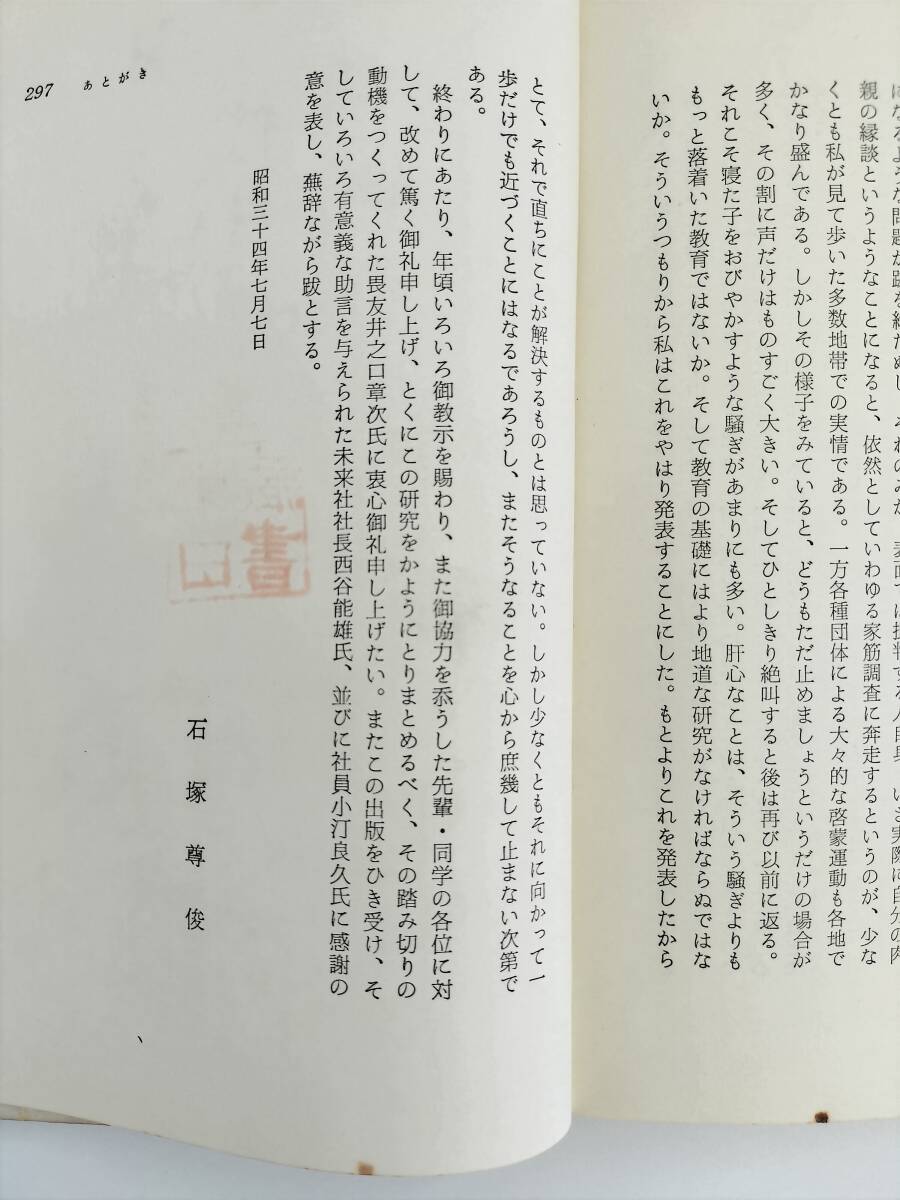 親の縁談というようなことになると、依然としていわゆる家筋調査に奔走するというのが、少な
くとも私が見て歩いた多数地帯での実情である。一方各種団体による大々的な啓蒙運動も各地で
かなり盛んである。しかしその様子をみていると、どうもただ止めましょうというだけの場合が
多く、その割に声だけはものすごく大きい。そしてひとしきり絶叫すると後は再び以前に返る。
それこそ寝た子をおびやかすような騒ぎがあまりにも多い。肝心なことは、そういう騒ぎよりも
もっと落着いた教育ではないか。そして教育の基礎にはより地道な研究がなければならぬではな
いか。そういうつもりから私はこれをやはり発表することにした。もとよりこれを発表したから
とて、それで直ちにことが解決するものとは思っていない。しかし少なくともそれに向かって一
歩だけでも近づくことにはなるであろうし、またそうなることを心から庶幾して止まない次第で
ある。
終わりにあたり、年頃いろいろ御教示を賜わり、また御協力を忝うした先輩・同学の各位に対
して、改めて篤く御礼申し上げ、とくにこの研究をかようにとりまとめるべく、その踏み切りの
動機をつくってくれた畏友井之口章次氏に衷心御礼申し上げたい。またこの出版をひき受け、そ
していろいろ有意義な助言を与えられた未来社社長西谷能雄氏、並びに社員小汀良久氏に感謝の
意を表し、蕪辞ながら跋とする。
昭和三十四年七月七日
石塚尊俊
297 あとがき